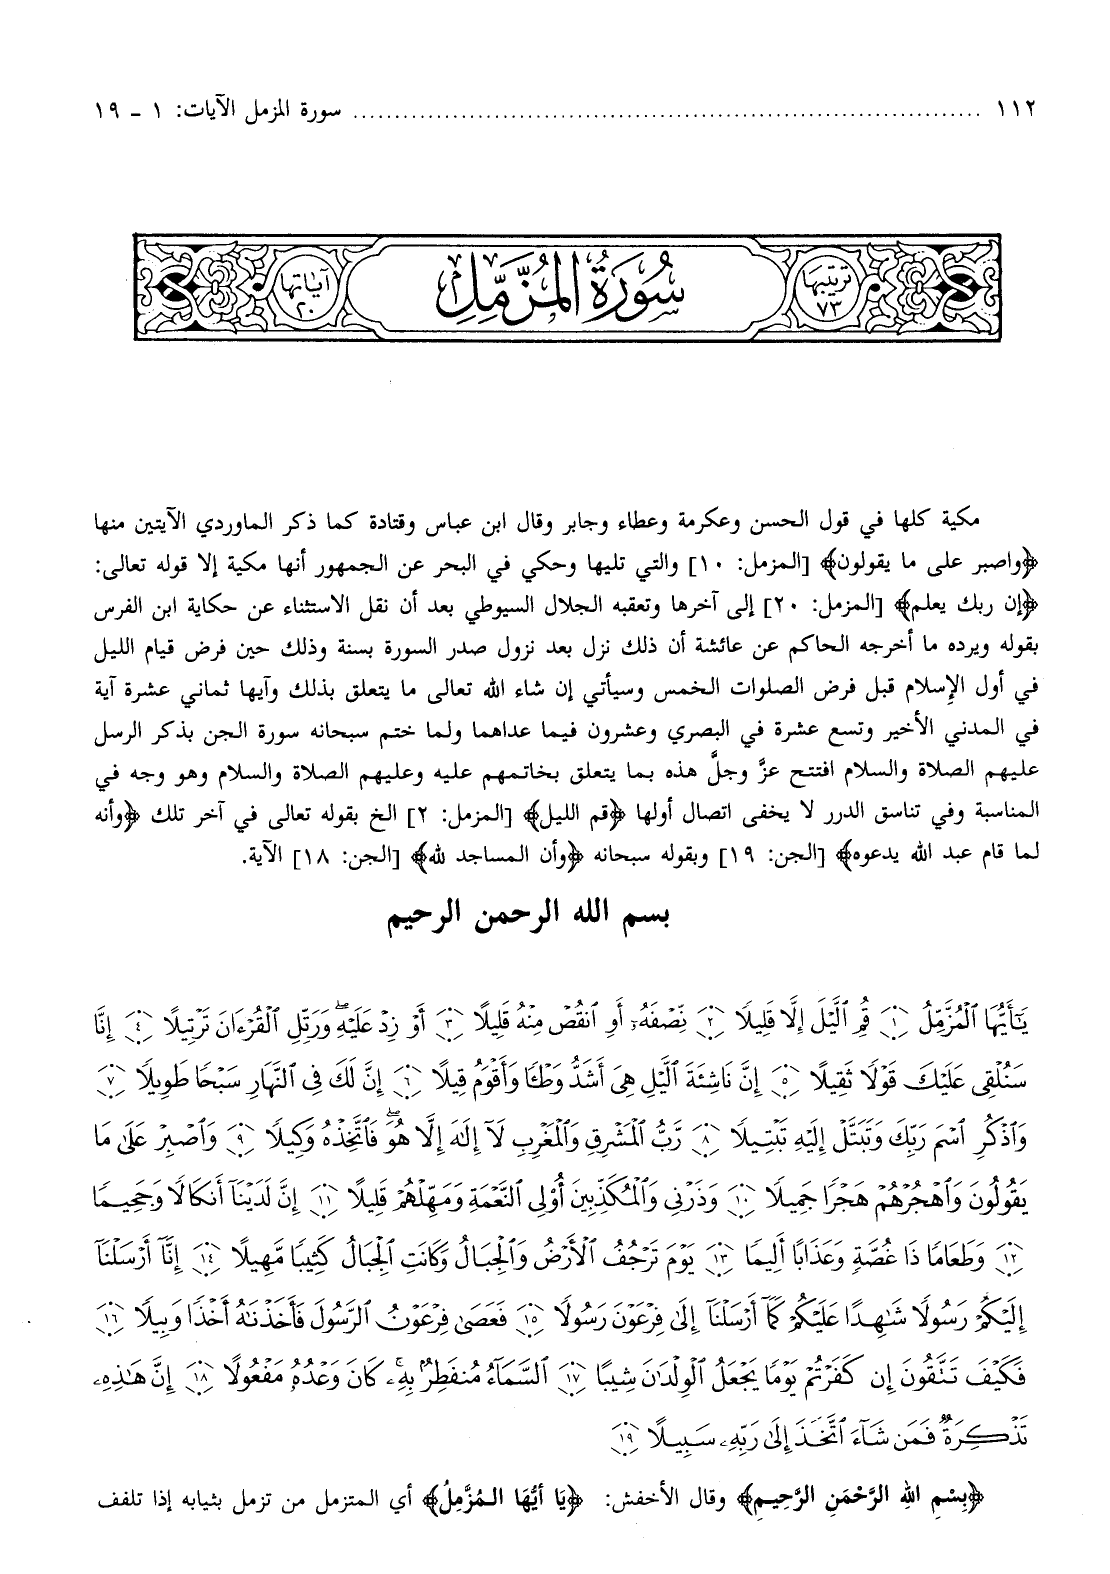 ١١٢ ........................................................................ سورة المزمل الآيات: ١ - ١٩
ترتيبها ٧٣
سُورَةُ المُزَّمِّلِ
آياتها ٢٠
مكية كلها في قول الحسن وعكرمة وعطاء وجابر وقال ابن عباس وقتادة كما ذكر الماوردي الآيتين منها
﴿واصبر على ما يقولون﴾ [المزمل: ١٠] والتي تليها وحكي في البحر عن الجمهور أنها مكية إلا قوله تعالى:
﴿إن ربك يعلم﴾ [المزمل: ٢٠] إلى آخرها وتعقبه الجلال السيوطي بعد أن نقل الاستثناء عن حكاية ابن الفرس
بقوله ويرده ما أخرجه الحاكم عن عائشة أن ذلك نزل بعد نزول صدر السورة بسنة وذلك حين فرض قيام الليل
في أول الإسلام قبل فرض الصلوات الخمس وسيأتي إن شاء الله تعالى ما يتعلق بذلك وآيها ثماني عشرة آية
في المدني الأخير وتسع عشرة في البصري وعشرون فيما عداهما ولما ختم سبحانه سورة الجن بذكر الرسل
عليهم الصلاة والسلام افتتح عزَّ وجلَّ هذه بما يتعلق بخاتمهم عليه وعليهم الصلاة والسلام وهو وجه في
المناسبة وفي تناسق الدرر لا يخفى اتصال أولها ﴿قم الليل﴾ [المزمل: ٢] الخ بقوله تعالى في آخر تلك ﴿وأنه
لما قام عبد الله يدعوه﴾ [الجن: ١٩] وبقوله سبحانه ﴿وأن المساجد لله﴾ [الجن: ١٨] الآية.
بسم الله الرحمن الرحيم
يَٰٓأَيُّهَا ٱلْمُزَّمِّلُ ١ قُمِ ٱلَّيْلَ إِلَّا قَلِيلًا ٢ نِّصْفَهُۥٓ أَوِ ٱنقُصْ مِنْهُ قَلِيلًا ٣ أَوْ زِدْ عَلَيْهِ ۖ وَرَتِّلِ ٱلْقُرْءَانَ تَرْتِيلًا ٤ إِنَّا
سَنُلْقِى عَلَيْكَ قَوْلًا ثَقِيلًا ٥ إِنَّ نَاشِئَةَ ٱلَّيْلِ هِىَ أَشَدُّ وَطْـًٔا وَأَقْوَمُ قِيلًا ٦ إِنَّ لَكَ فِى ٱلنَّهَارِ سَبْحًا طَوِيلًا ٧
وَٱذْكُرِ ٱسْمَ رَبِّكَ وَتَبَتَّلْ إِلَيْهِ تَبْتِيلًا ٨ رَّبُّ ٱلْمَشْرِقِ وَٱلْمَغْرِبِ لَآ إِلَٰهَ إِلَّا هُوَ ۖ فَٱتَّخِذْهُ وَكِيلًا ٩ وَٱصْبِرْ عَلَىٰ مَا
يَقُولُونَ وَٱهْجُرْهُمْ هَجْرًا جَمِيلًا ١٠ وَذَرْنِى وَٱلْمُكَذِّبِينَ أُو۟لِى ٱلنَّعْمَةِ وَمَهِّلْهُمْ قَلِيلًا ١١ إِنَّ لَدَيْنَآ أَنكَالًا وَجَحِيمًا
١٢ وَطَعَامًا ذَا غُصَّةٍ وَعَذَابًا أَلِيمًا ١٣ يَوْمَ تَرْجُفُ ٱلْأَرْضُ وَٱلْجِبَالُ وَكَانَتِ ٱلْجِبَالُ كَثِيبًا مَّهِيلًا ١٤ إِنَّآ أَرْسَلْنَآ
إِلَيْكُمْ رَسُولًا شَٰهِدًا عَلَيْكُمْ كَمَآ أَرْسَلْنَآ إِلَىٰ فِرْعَوْنَ رَسُولًا ١٥ فَعَصَىٰ فِرْعَوْنُ ٱلرَّسُولَ فَأَخَذْنَٰهُ أَخْذًا وَبِيلًا ١٦
فَكَيْفَ تَتَّقُونَ إِن كَفَرْتُمْ يَوْمًا يَجْعَلُ ٱلْوِلْدَٰنَ شِيبًا ١٧ ٱلسَّمَآءُ مُنفَطِرٌۢ بِهِۦ ۚ كَانَ وَعْدُهُۥ مَفْعُولًا ١٨ إِنَّ هَٰذِهِۦ
تَذْكِرَةٌ ۖ فَمَن شَآءَ ٱتَّخَذَ إِلَىٰ رَبِّهِۦ سَبِيلًا ١٩
﴿بِسْمِ اللهِ الرَّحْمَنِ الرَّحِيمِ﴾ وقال الأخفش: ﴿يَا أَيُّهَا المُزَّمِلُ﴾ أي المتزمل من تزمل بثيابه إذا تلفف